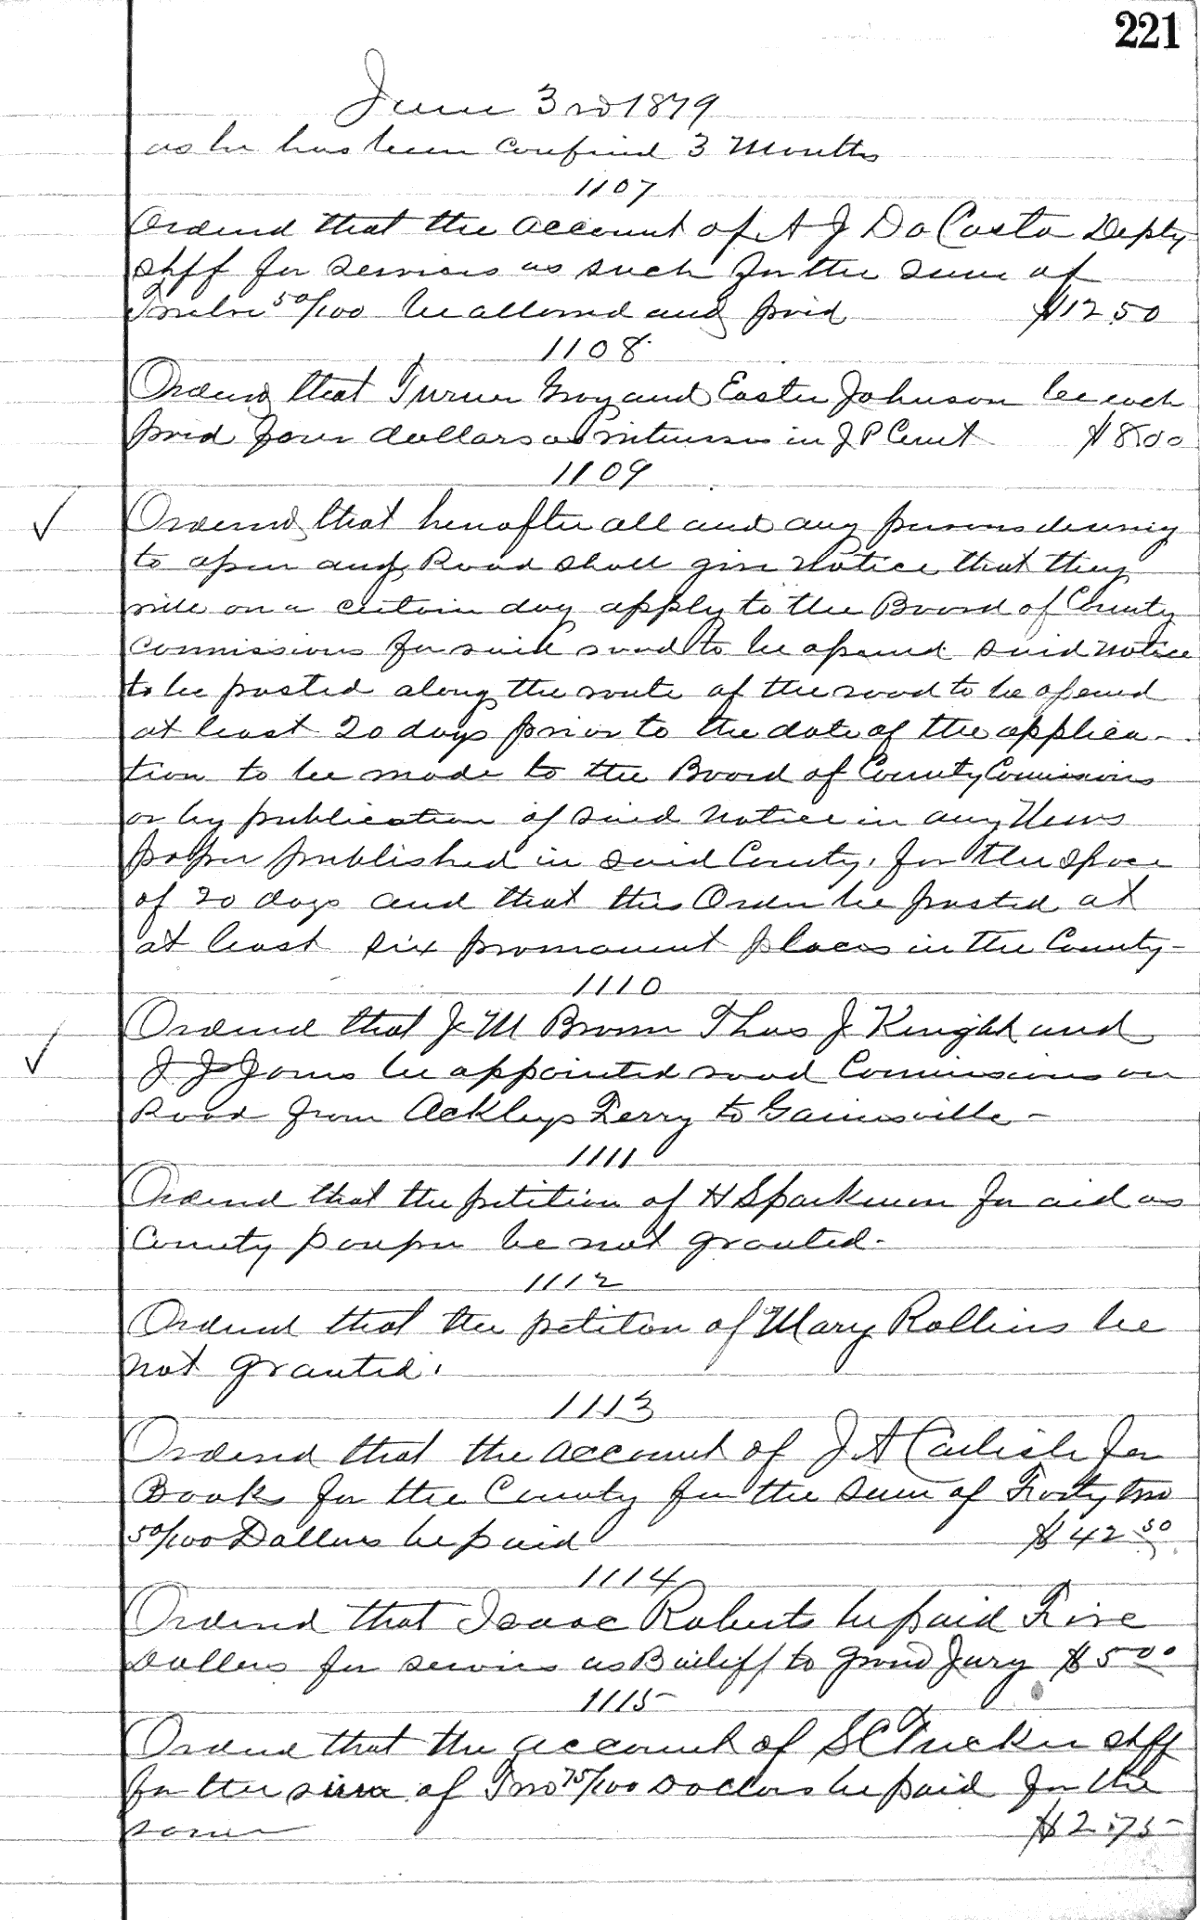 221
June 3rd 1879
as he has been confined 3 Months
1107
Ordered that the account of A J Da Costa Depty
Shff for services as such for the sum of
Twelve 50/100 be allowed and paid $12.50
1108
Ordered that Turner Gray and Easter Johnson be each
paid four dollars as witnesses in J P Court $8.00
1109
Ordered that hereafter all and any persons desiring
to open any Road shall give Notice that they
will on a certain day apply to the Board of County
Commissioners for such road to be opened said notice
to be posted along the route of the road to be opened
at least 20 days prior to the date of the applica-
tion to be made to the Board of County Comissioners
or by publication of said notice in any News
paper published in said County, for the space
of 20 days and that this Order be posted at
at least six promanent places in the County-
1110
Ordered that J M Brown Thos J Knight and
J J Jones be appointed road Commissioners on
Road from Ackleys Ferry to Gainesville-
1111
Ordered that the petition of H Sparkman for aid as
County pauper be not granted-
1112
Ordered that the petiton of Mary Rollins be
not granted.
1113
Ordered that the account of J A Carlisle for
Books for the County for the sum of Forty two
50/100 Dollars be paid $42 50
1114
Ordered that Isaac Roberts be paid Five
Dollars for services as Bailiff to Grand Jury $5 00
1115
Ordered that the account of S C Tucker Shff
for the sum of Two 75/100 Dollars be paid for the
same $2.75